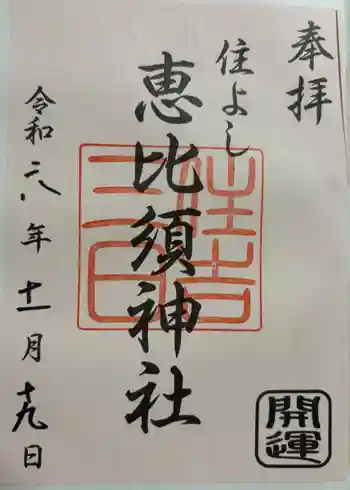 奉拝
住よし
恵比須神社
住吉
三日
令和六年十一月十九日
開運